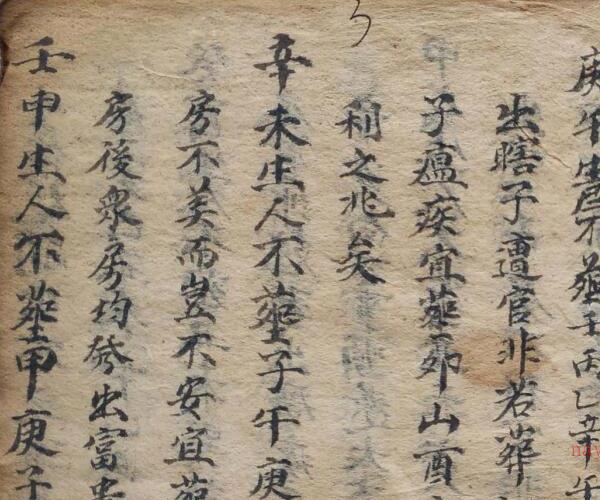 庚午生人不葬壬丙乙辛午
出瞎子遭官非若葬
子瘟疾宜葬卯山酉
利之兆矣
辛未生人不葬子午庚
房不美而岂不安宜葬
房後衆房均發出富貴
壬申生人不葬甲庚子